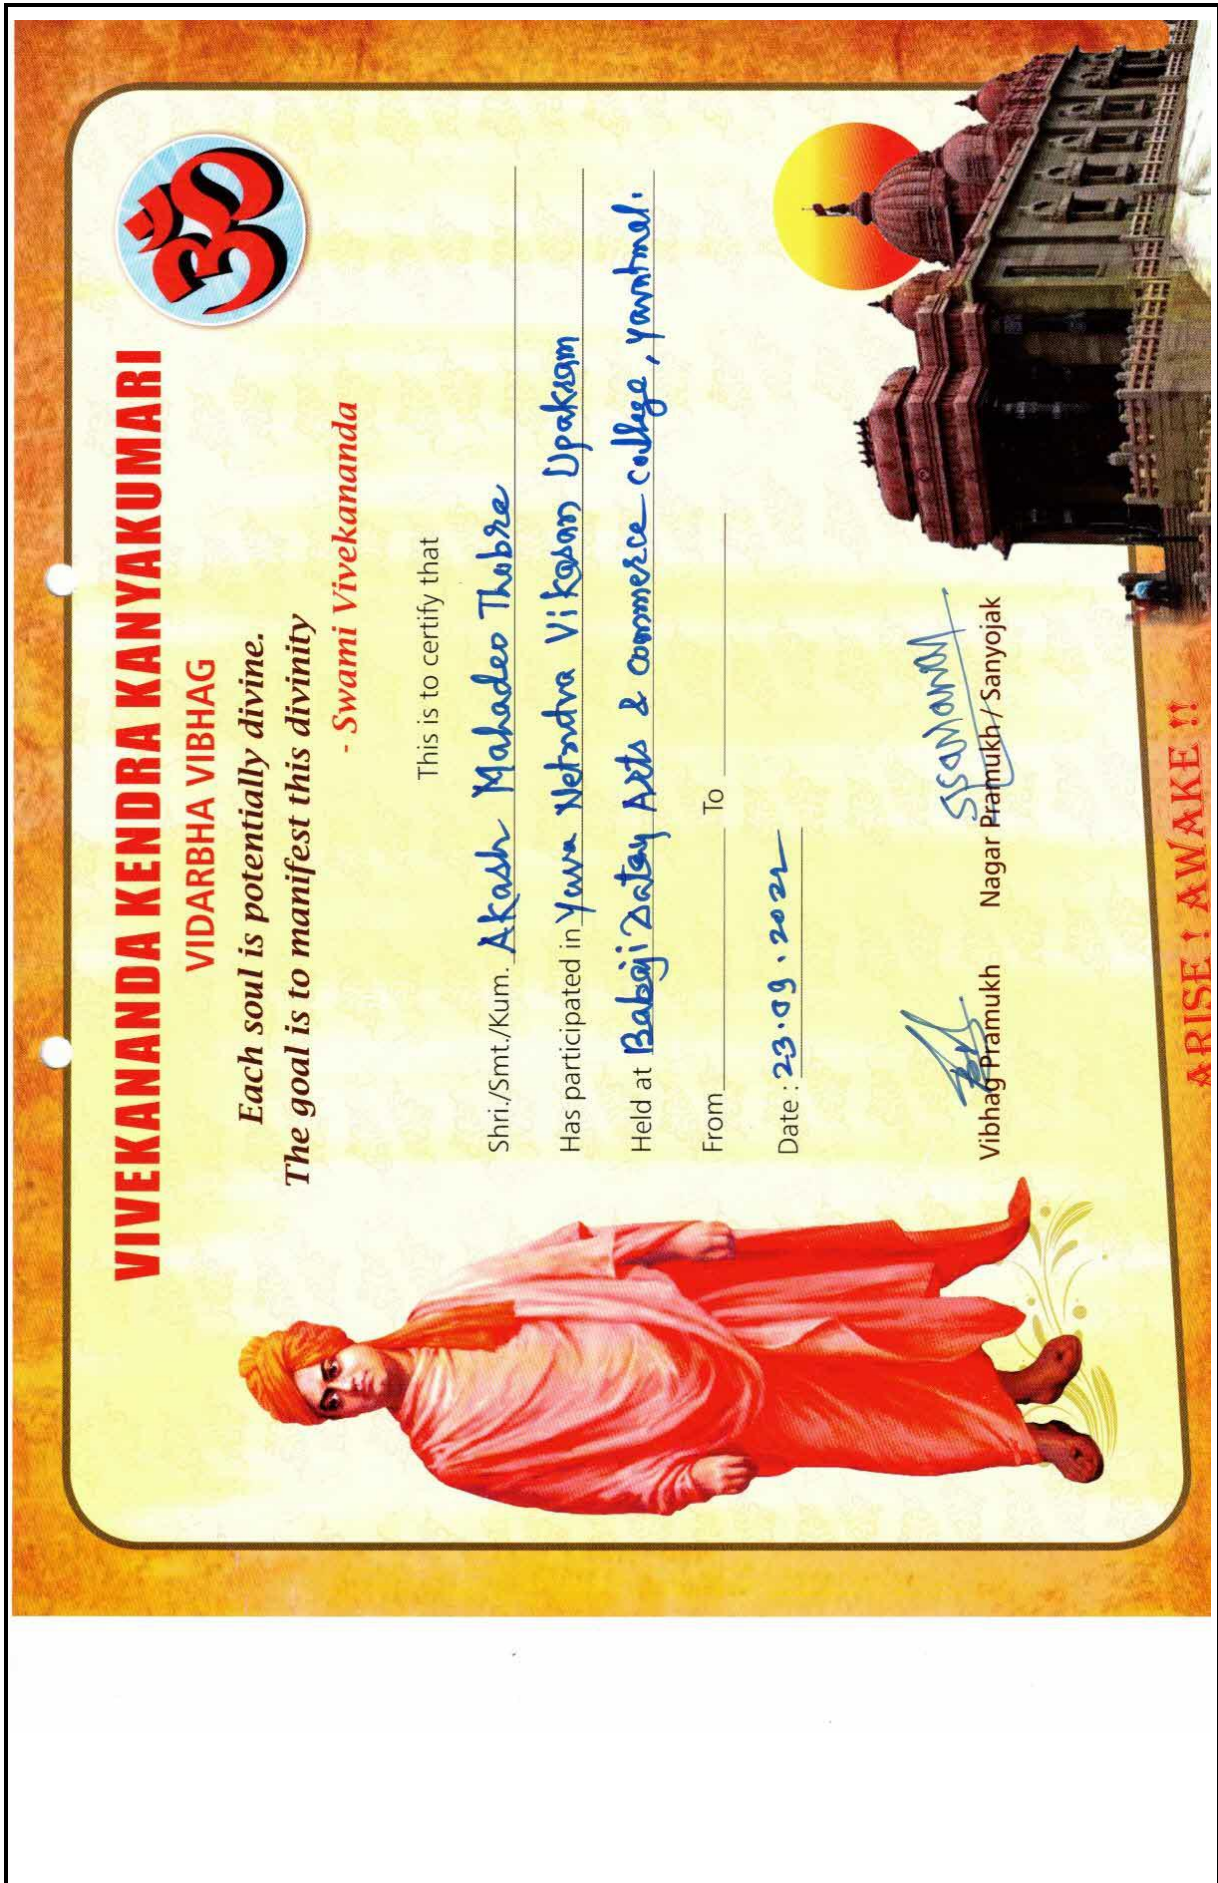 ॐ
VIVEKANANDA KENDRA KANYAKUMARI
VIDARBHA VIBHAG
Each soul is potentially divine.
The goal is to manifest this divinity
- Swami Vivekananda
This is to certify that
Shri./Smt./Kum. Akash Mahadeo Thobre
Has participated in Yuva Netrutva Vikasan Upakram
Held at Babaji Datey Arts & commerce college, Yavatmal.
From To
Date : 23.09.2022
Vibhag Pramukh Nagar Pramukh / Sanyojak
ARISE ! AWAKE !!